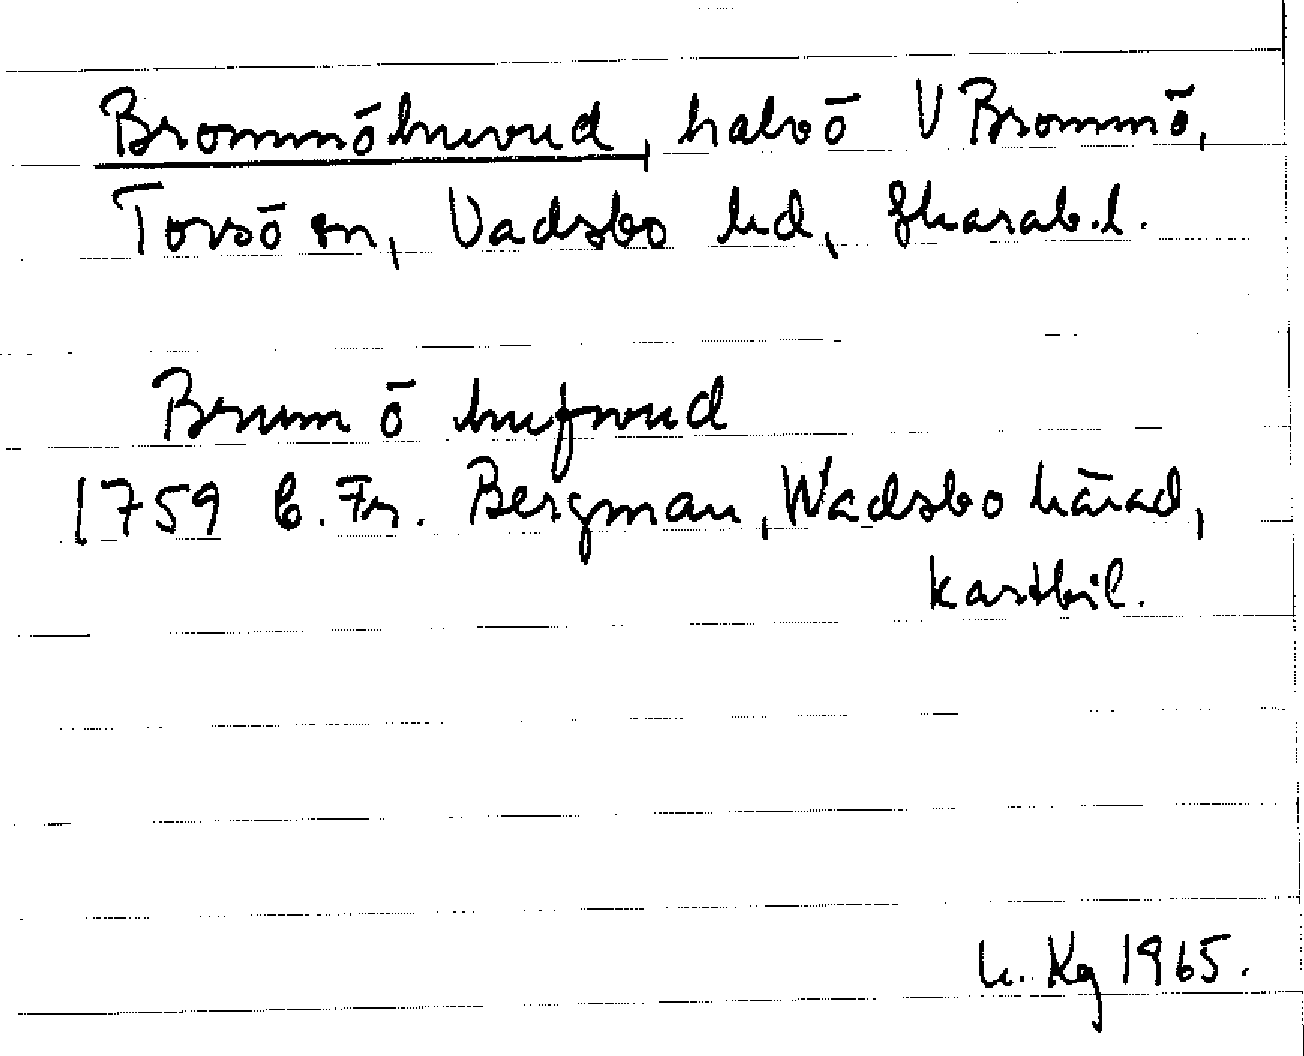 Brommöhuvud, halvö V Brommö,
Torsö sn, Vadsbo hd, Skarab.l.
Brum ö hufwud
1759 C. Fr. Bergman, Wadsbo härad,
kartbil.
h. Kg 1965.